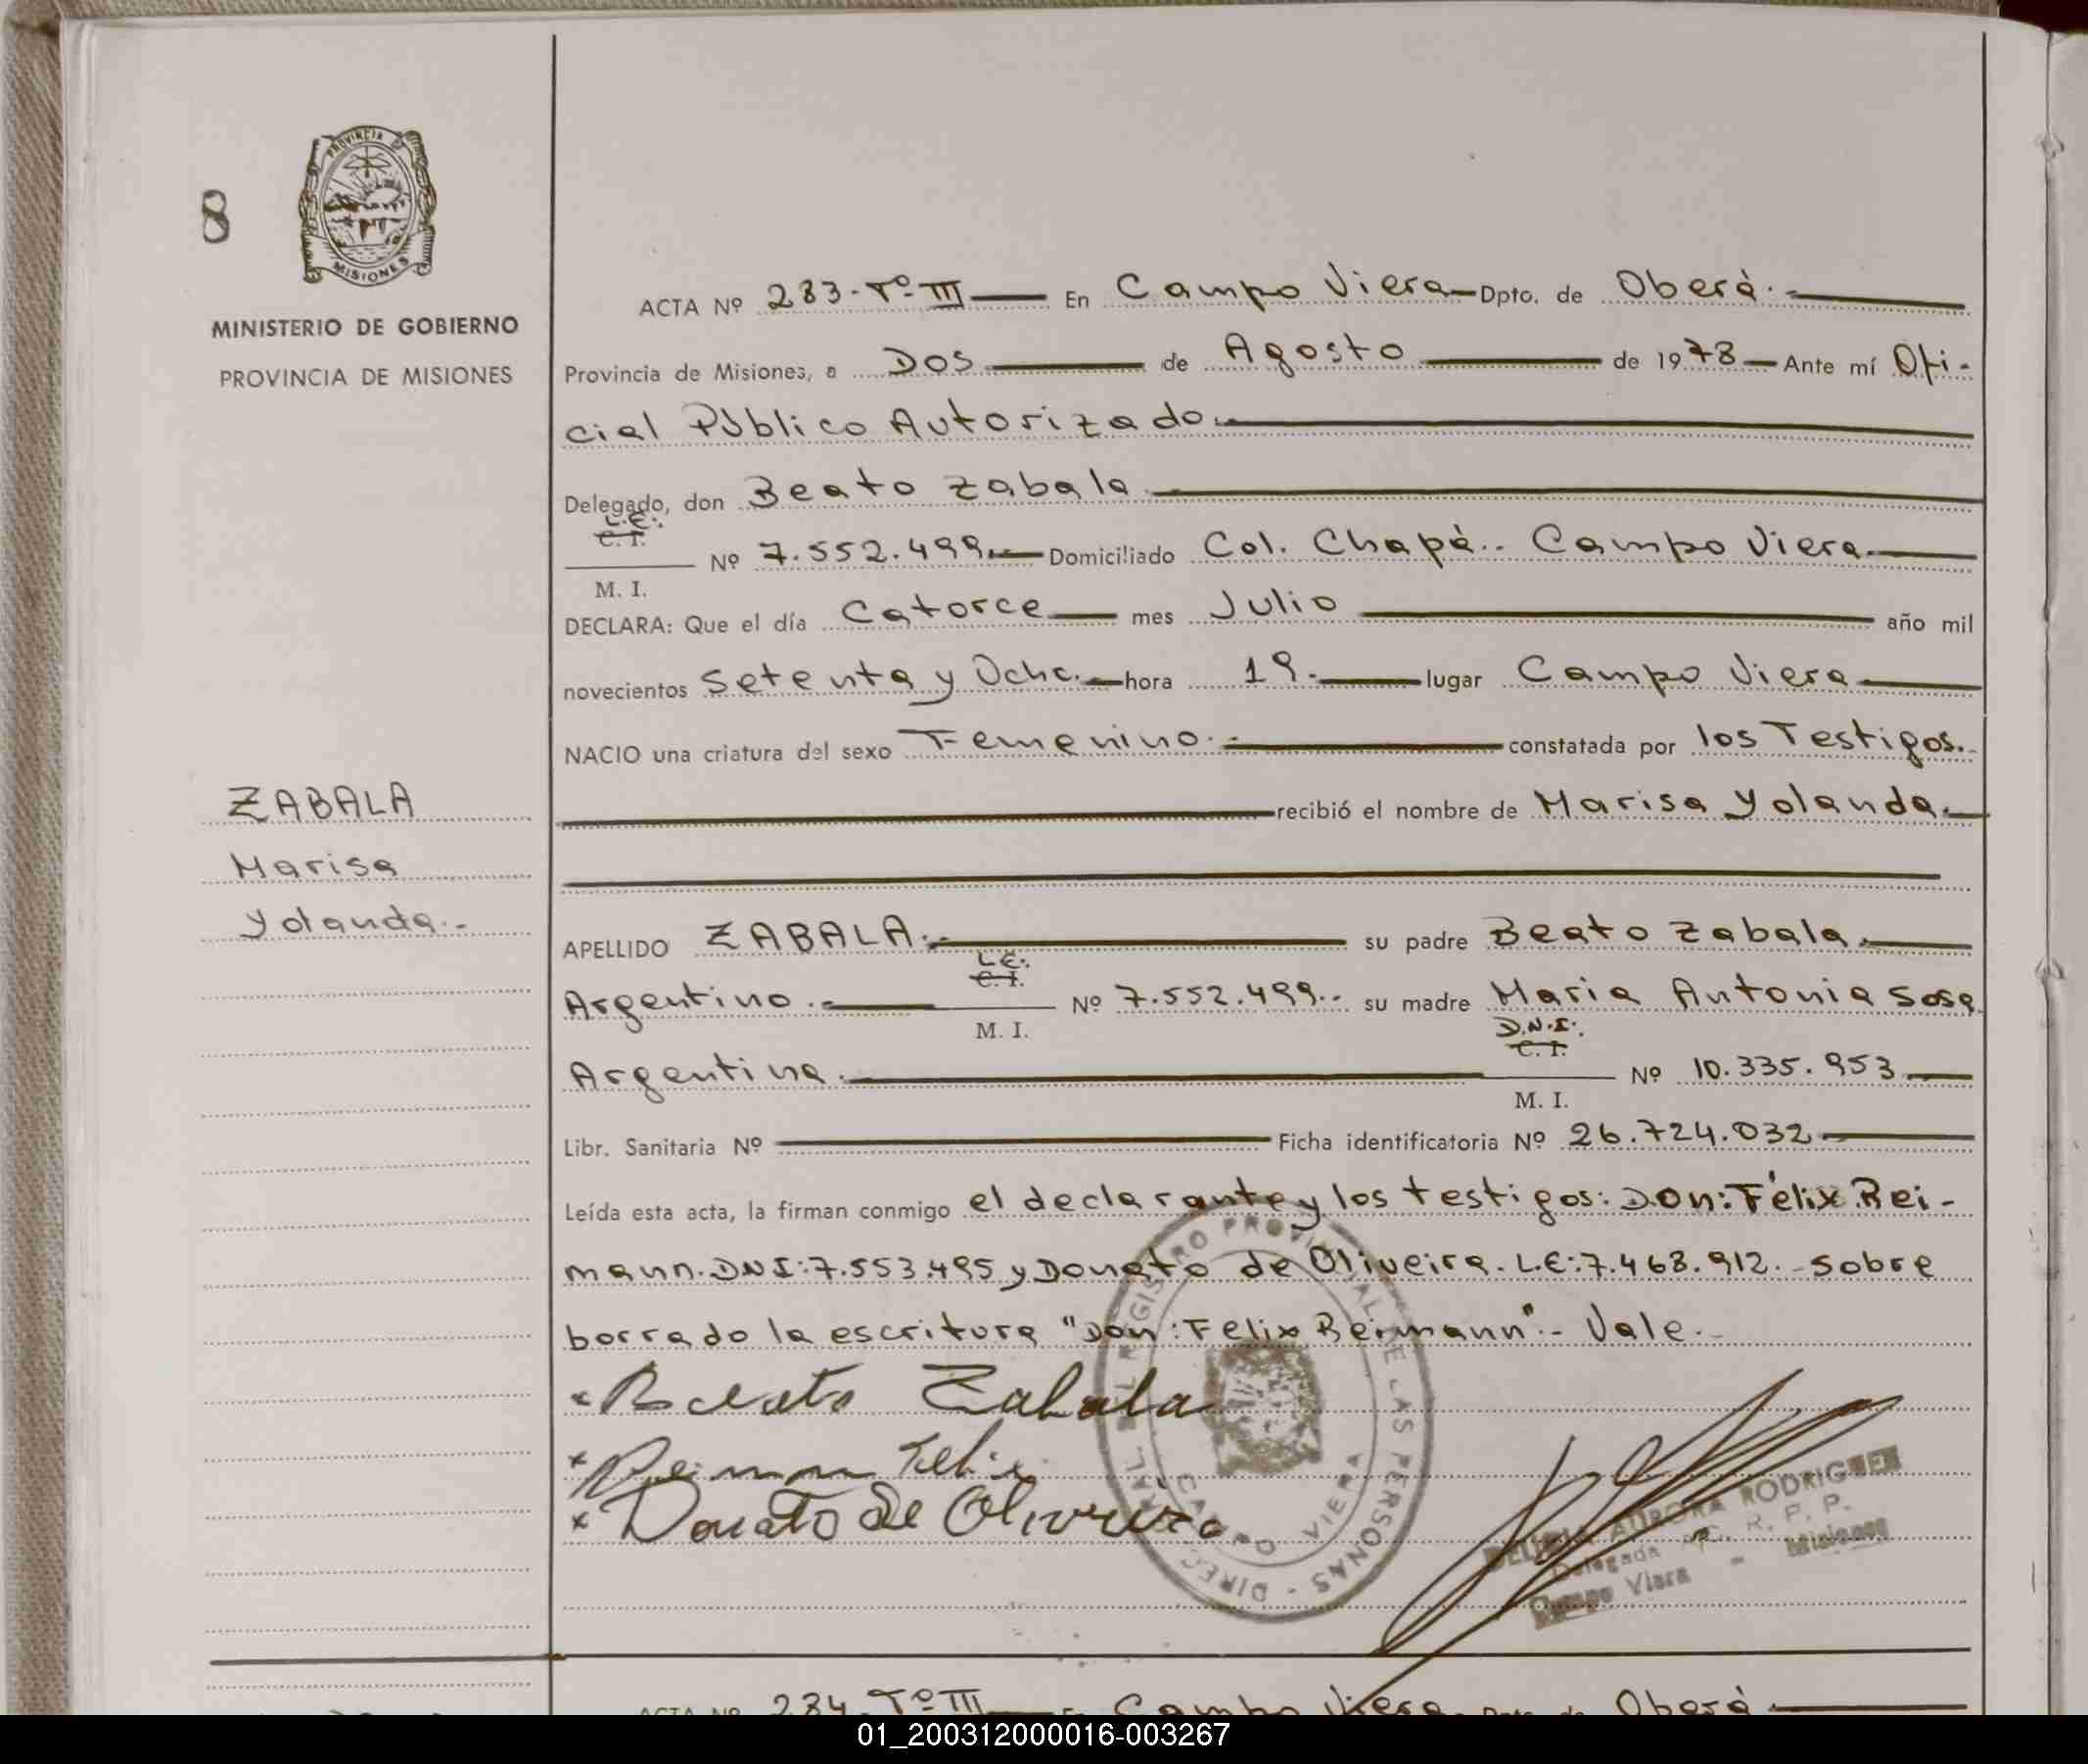 8
PROVINCIA
MISIONES
MINISTERIO DE GOBIERNO
PROVINCIA DE MISIONES
ZABALA
Marisa
Yolanda.-
ACTA Nº 283-Tº-III En Campo Viera Dpto. de Oberá.-
Provincia de Misiones, a Dos de Agosto de 1978 Ante mí Ofi-
cial Público Autorizado.-
Delegado, don Beato Zabala.-
L.E.:
C. I.
M. I.
Nº 7.552.499.- Domiciliado Col. Chapá.- Campo Viera.-
DECLARA: Que el día Catorce mes Julio año mil
novecientos Setenta y Ocho.- hora 19.- lugar Campo Viera
NACIO una criatura del sexo Femenino.- constatada por los Testigos.-
recibió el nombre de Marisa Yolanda.-
APELLIDO ZABALA.- su padre Beato Zabala.-
L.E.:
C. I.
Argentino.- Nº 7.552.499.- su madre Maria Antonia Sosa
M. I.
D.N.I.:
C. I.
Argentina.- Nº 10.335.953
M. I.
Libr. Sanitaria Nº Ficha identificatoria Nº 26.724.032
Leída esta acta, la firman conmigo el declarante y los testigos: Don: Félix Rei-
mann. DNI: 7.553.495 y Donato de Oliveira. L.E: 7.468.912.- Sobre
borrado la escritura "Don: Felix Reimann".- Vale.-
x Beato Zabala
x Reiman Felix
x Donato De Oliveira
REGISTRO PROVINCIAL DE LAS PERSONAS - DIREC
CAMPO VIERA
AURORA RODRIGUEZ
Delegada R. P. P.
Campo Viera - Misiones
ACTA Nº 284 Tº III En Campo Viera. Dpto. de Oberá.-
01_200312000016-003267